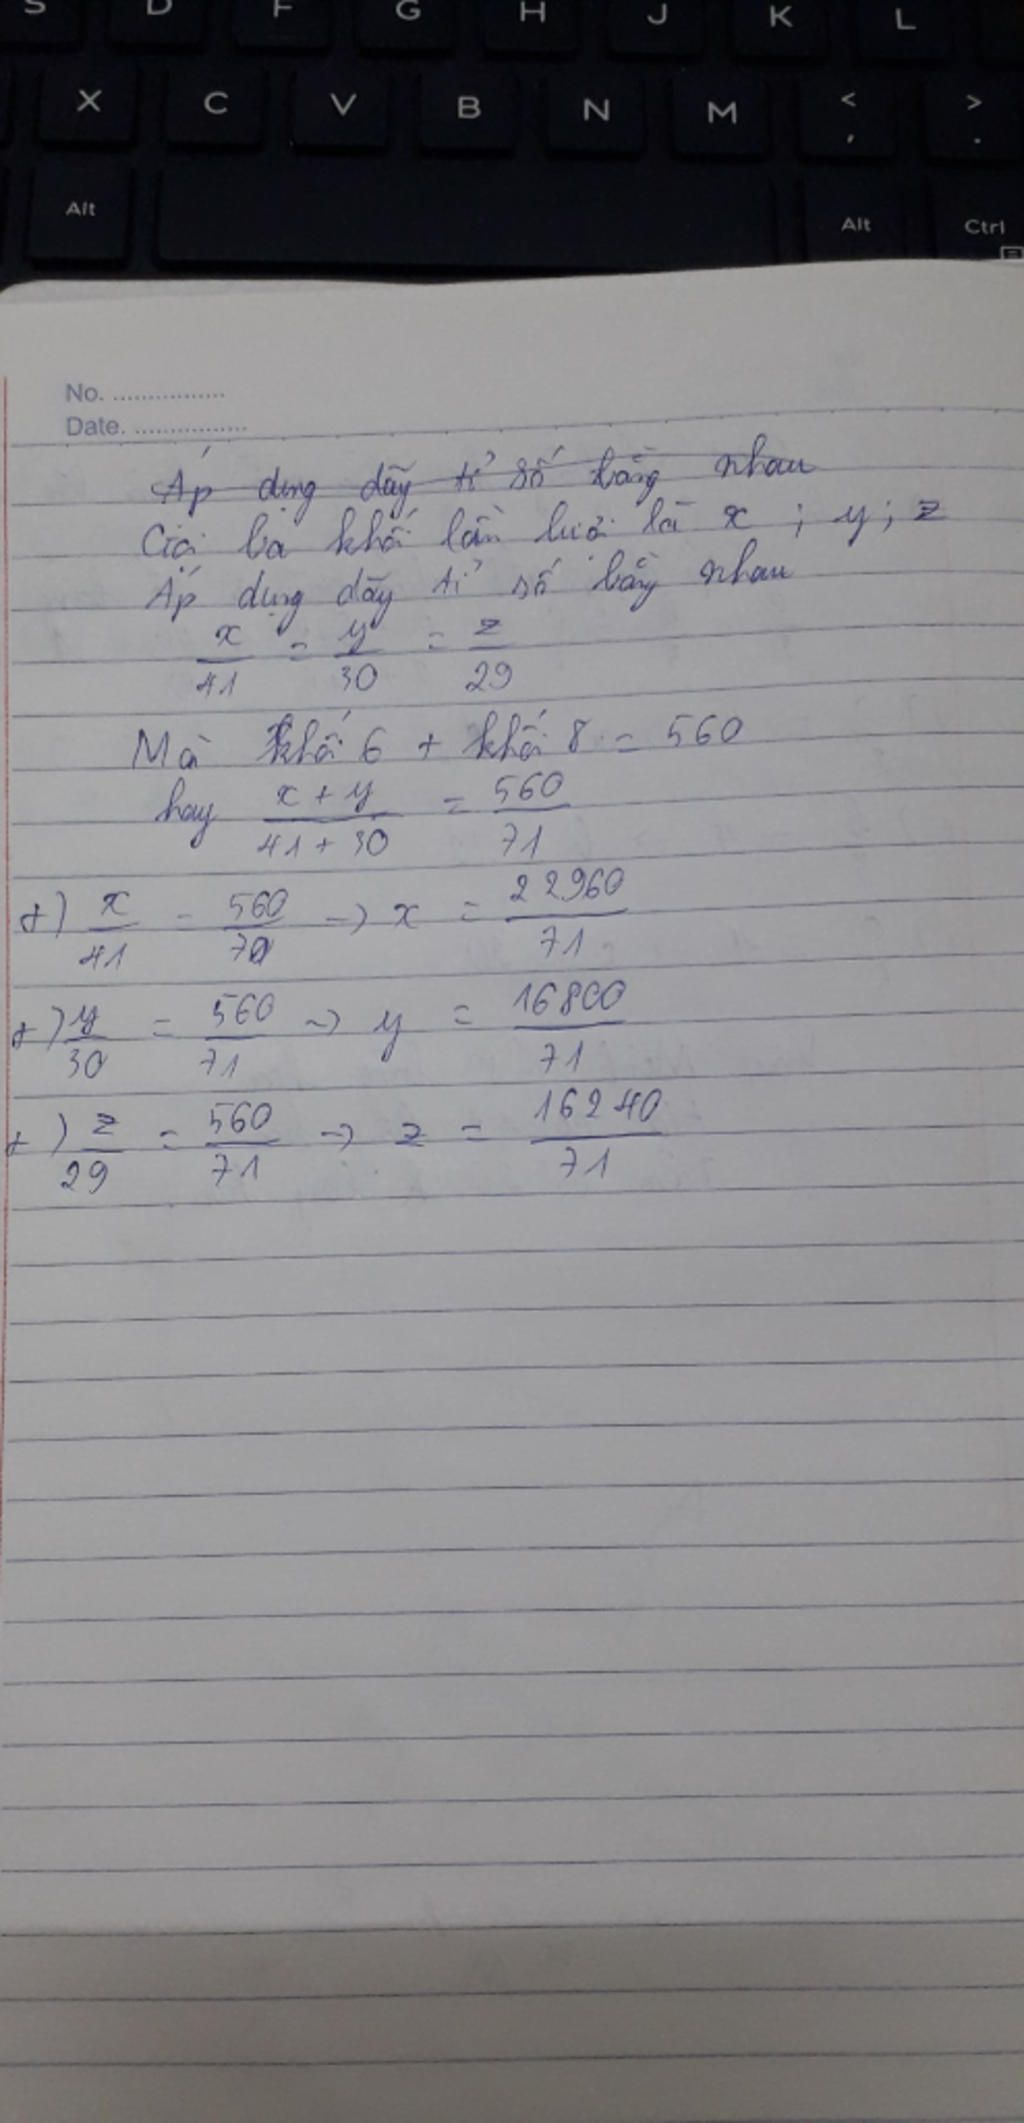 S D F G H J K L
X C V B N M < , > .
Alt Alt Ctrl
No. ................
Date. ................
Áp dụng dãy tỉ số bằng nhau
Gọi ba khối lần lượt là x ; y ; z
Áp dụng dãy tỉ số bằng nhau
x/41 = y/30 = z/29
Mà khối 6 + khối 8 = 560
hay x + y/41 + 30 = 560/71
+) x/41 = 560/71 → x = 22960/71
+) y/30 = 560/71 → y = 16800/71
+) z/29 = 560/71 → z = 16240/71